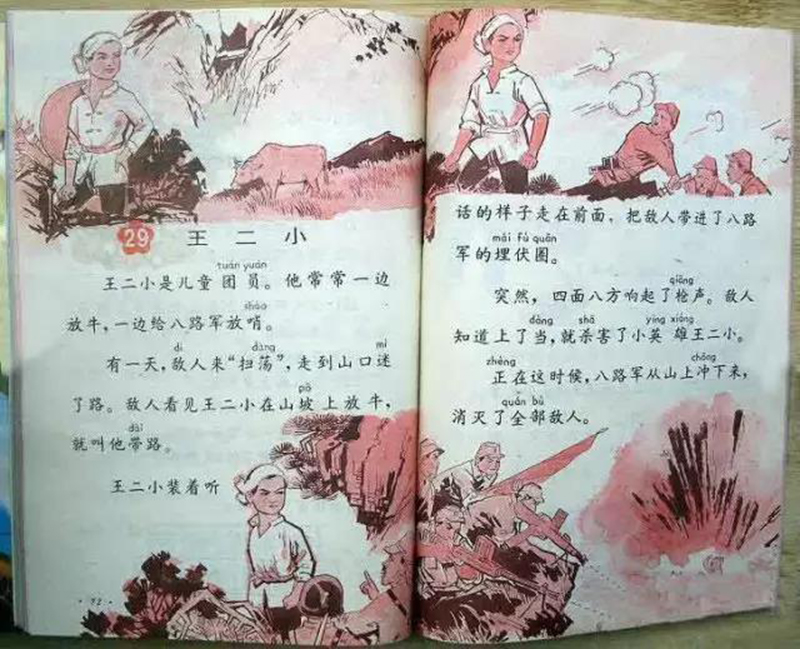 29 王二小
tuán yuán
王二小是儿童团员。他常常一边
shào
放牛,一边给八路军放哨。
dí dàng mí
有一天,敌人来“扫荡”,走到山口迷
pō
了路。敌人看见王二小在山坡上放牛,
dài
就叫他带路。
王二小装着听
· 72 ·
话的样子走在前面,把敌人带进了八路
mái fú quān
军的埋伏圈。
qiāng
突然,四面八方响起了枪声。敌人
dàng shā yīng xióng
知道上了当,就杀害了小英雄王二小。
zhèng chōng
正在这时候,八路军从山上冲下来,
quán bù
消灭了全部敌人。